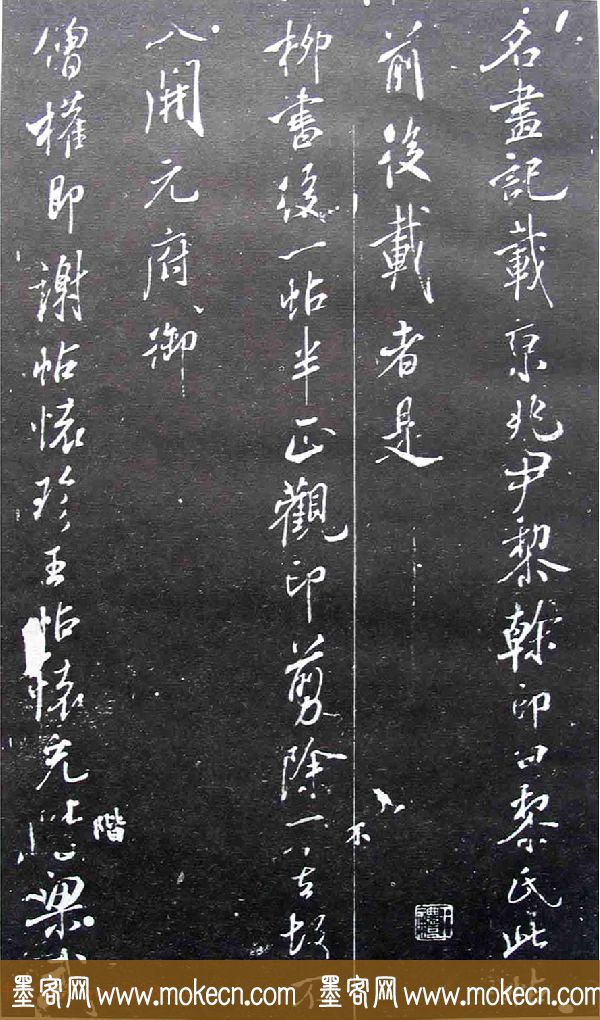 名畫記載京兆尹黎幹印曰黎氏此帖
前後載者是
柳書後一帖半正觀印剪除一古
不
入開元府御
僧權即謝帖懷珍王帖懷充此梁
階
墨客网 www.mokecn.com 墨客网 www.mokecn.com